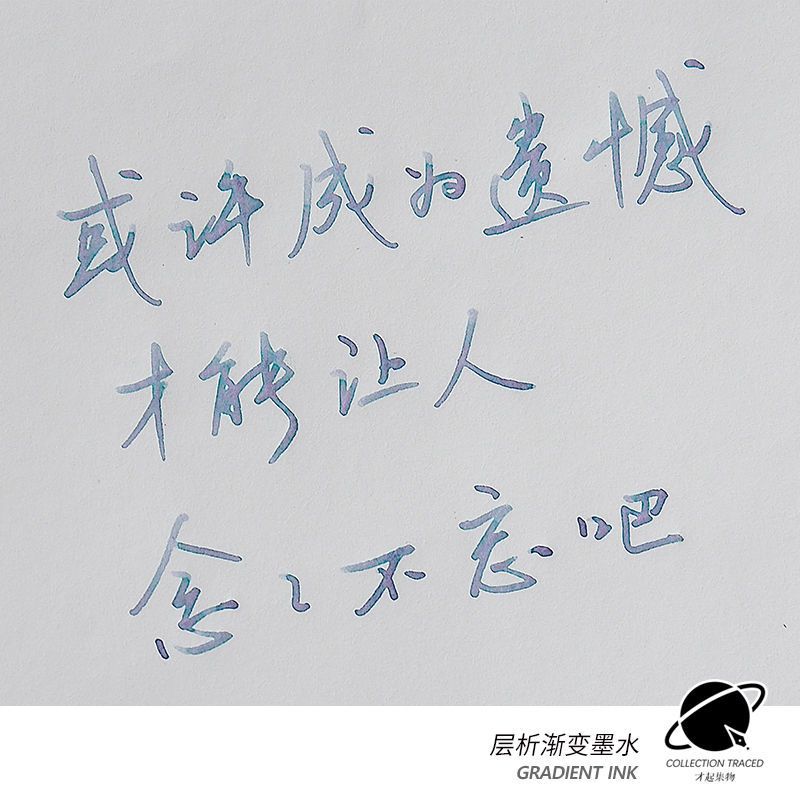 或许成为遗憾
才能让人
念々不忘吧
层析渐变墨水
GRADIENT INK
COLLECTION TRACED
才起集物